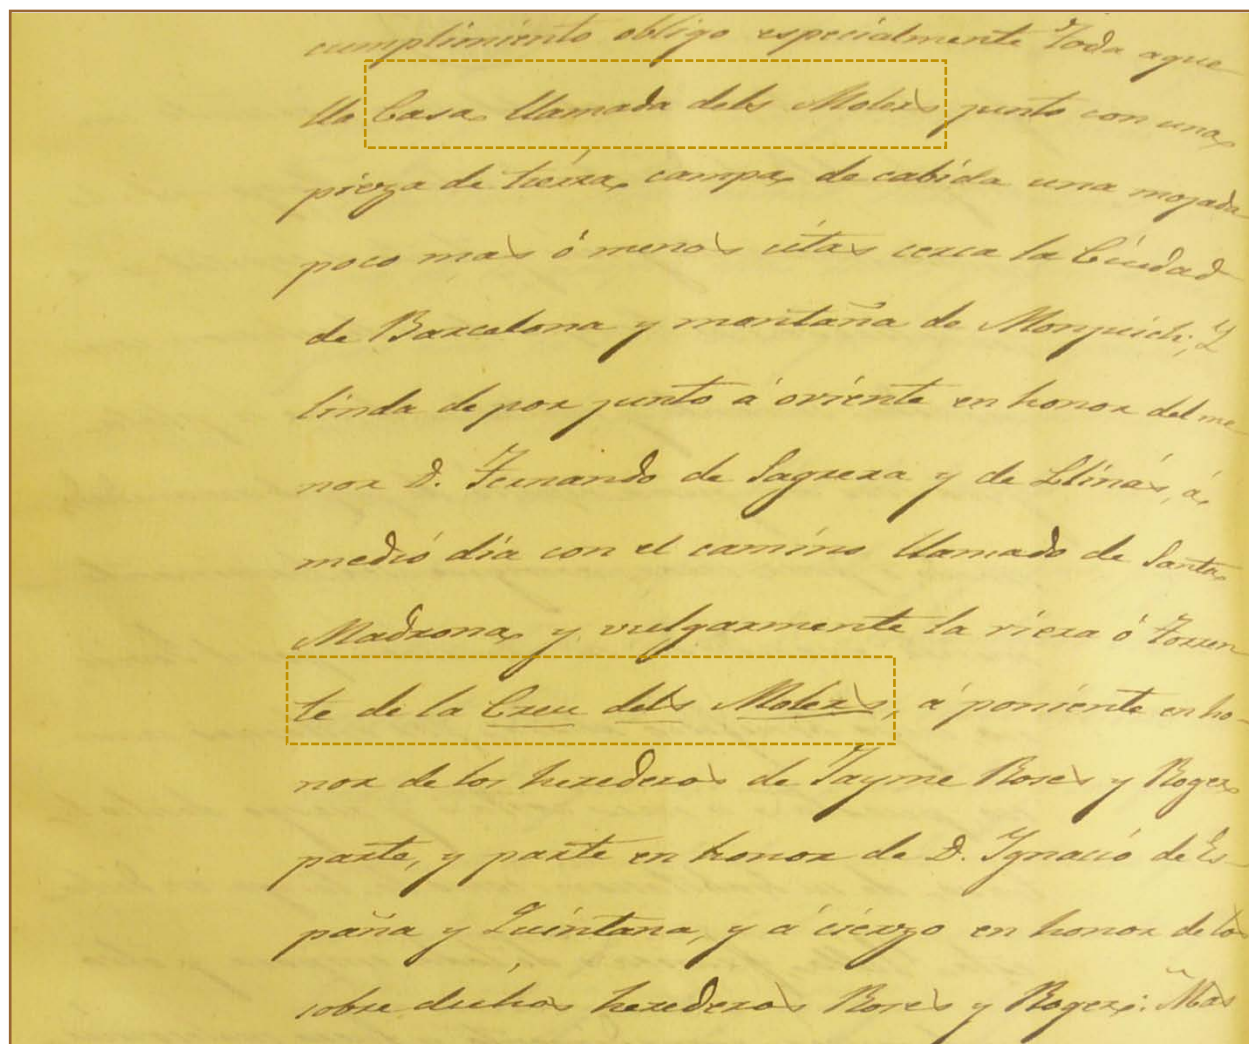 cumplimiento obligo especialmente toda aque
lla Casa llamada dels Molers junto con una
pieza de tierra campa de cabida una mojada
poco mas ó menos citas cerca la Ciudad
de Barcelona y montaña de Monjuich; Y
linda de por junto á oriente en honor del me
nor D. Fernando de Sagrera y de Llinás, á
medio dia con el camino llamado de Santa
Madrona y vulgarmente la riera ó torren
te de la Creu dels Molers, á poniente en ho-
nor de los herederos de Jayme Roses y Roger
parte, y parte en honor de D. Ignacio de Es-
paña y Quintana, y á cierzo en honor de los
sobre dichos herederos Roses y Roger: Mas